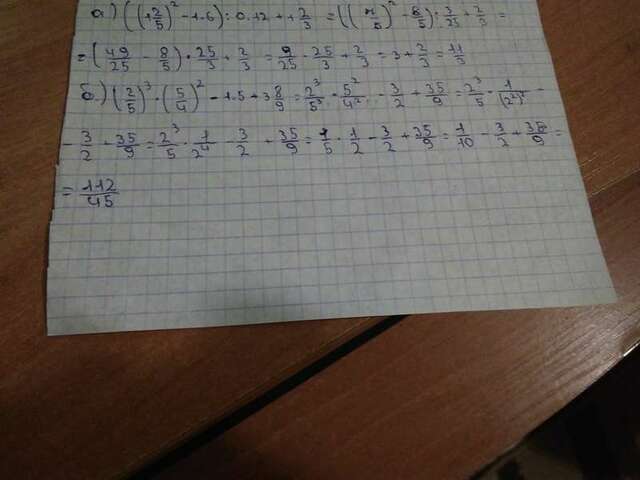 а) ((1 2/5)² - 1.6) : 0.12 + 1 2/3 = ((7/5)² - 8/5) : 3/25 + 2/3 =
= (49/25 - 8/5) · 25/3 + 2/3 = 9/25 · 25/3 + 2/3 = 3 + 2/3 = 11/3
б.) (2/5)³ · (5/4)² - 1.5 + 3 8/9 = 2³/5³ · 5²/4² - 3/2 + 35/9 = 2³/5 · 1/(2²)² -
- 3/2 + 35/9 = 2³/5 · 1/2⁴ - 3/2 + 35/9 = 1/5 · 1/2 - 3/2 + 35/9 = 1/10 - 3/2 + 35/9 =
= 112/45